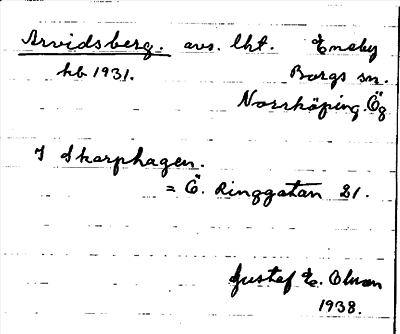 Arvidsberg. avs. lht. Eneby
hb 1931. Borgs sn.
Norrköping. Ög
I Skarphagen.
= Ö. Ringgatan 21.
Gustef E. Olsson
1938.